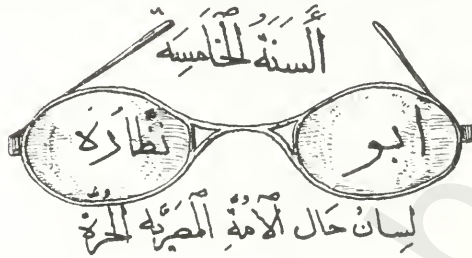 اَلسَّنَةُ الْخَامِسَة
ابو نظارة
لِسَانُ حَالِ الْاُمَّةِ الْمِصْرِيَّةِ الْحُرَّة